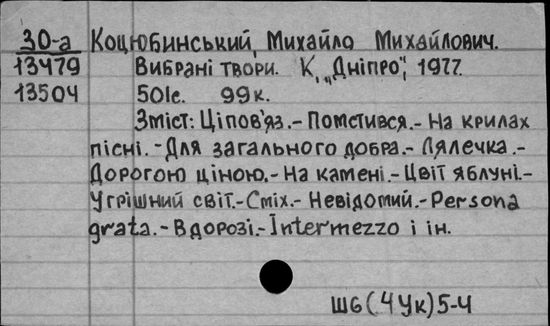 30-а Коцюбинський, Михайло Михайлович.
13479 Вибрані твори. К., „Дніпро", 1977.
13504 501с. 99к.
Зміст: Ціпов'яз.- Помстився.- На крилах
пісні.- Для загального добра.- Лялечка.-
Дорогою ціною.- На камені.- Цвіт яблуні.-
У грішний світ.- Сміх.- Невідомий.- Persona
grata.- В дорозі.- Intermezzo і ін.
Ш6(4Ук)5-4